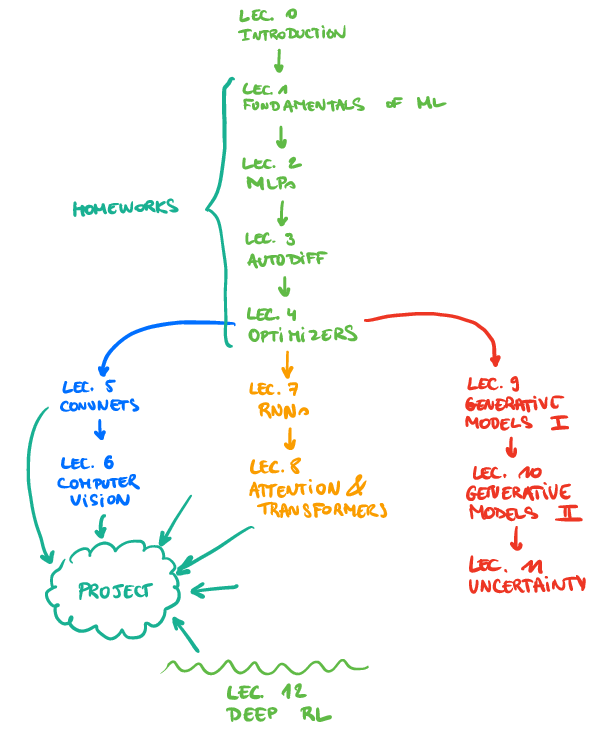 LEC. 0
INTRODUCTION
LEC. 1
FUNDAMENTALS OF ML
LEC. 2
MLPs
HOMEWORKS
LEC. 3
AUTODIFF
LEC. 4
OPTIMIZERS
LEC. 5
CONVNETS
LEC. 6
COMPUTER
VISION
LEC. 7
RNNs
LEC. 8
ATTENTION &
TRANSFORMERS
LEC. 9
GENERATIVE
MODELS I
LEC. 10
GENERATIVE
MODELS II
LEC. 11
UNCERTAINTY
PROJECT
LEC. 12
DEEP RL